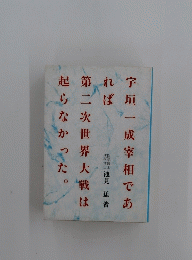 宇垣一成宰相であ
れば
第二次世界大戦は
起らなかった。